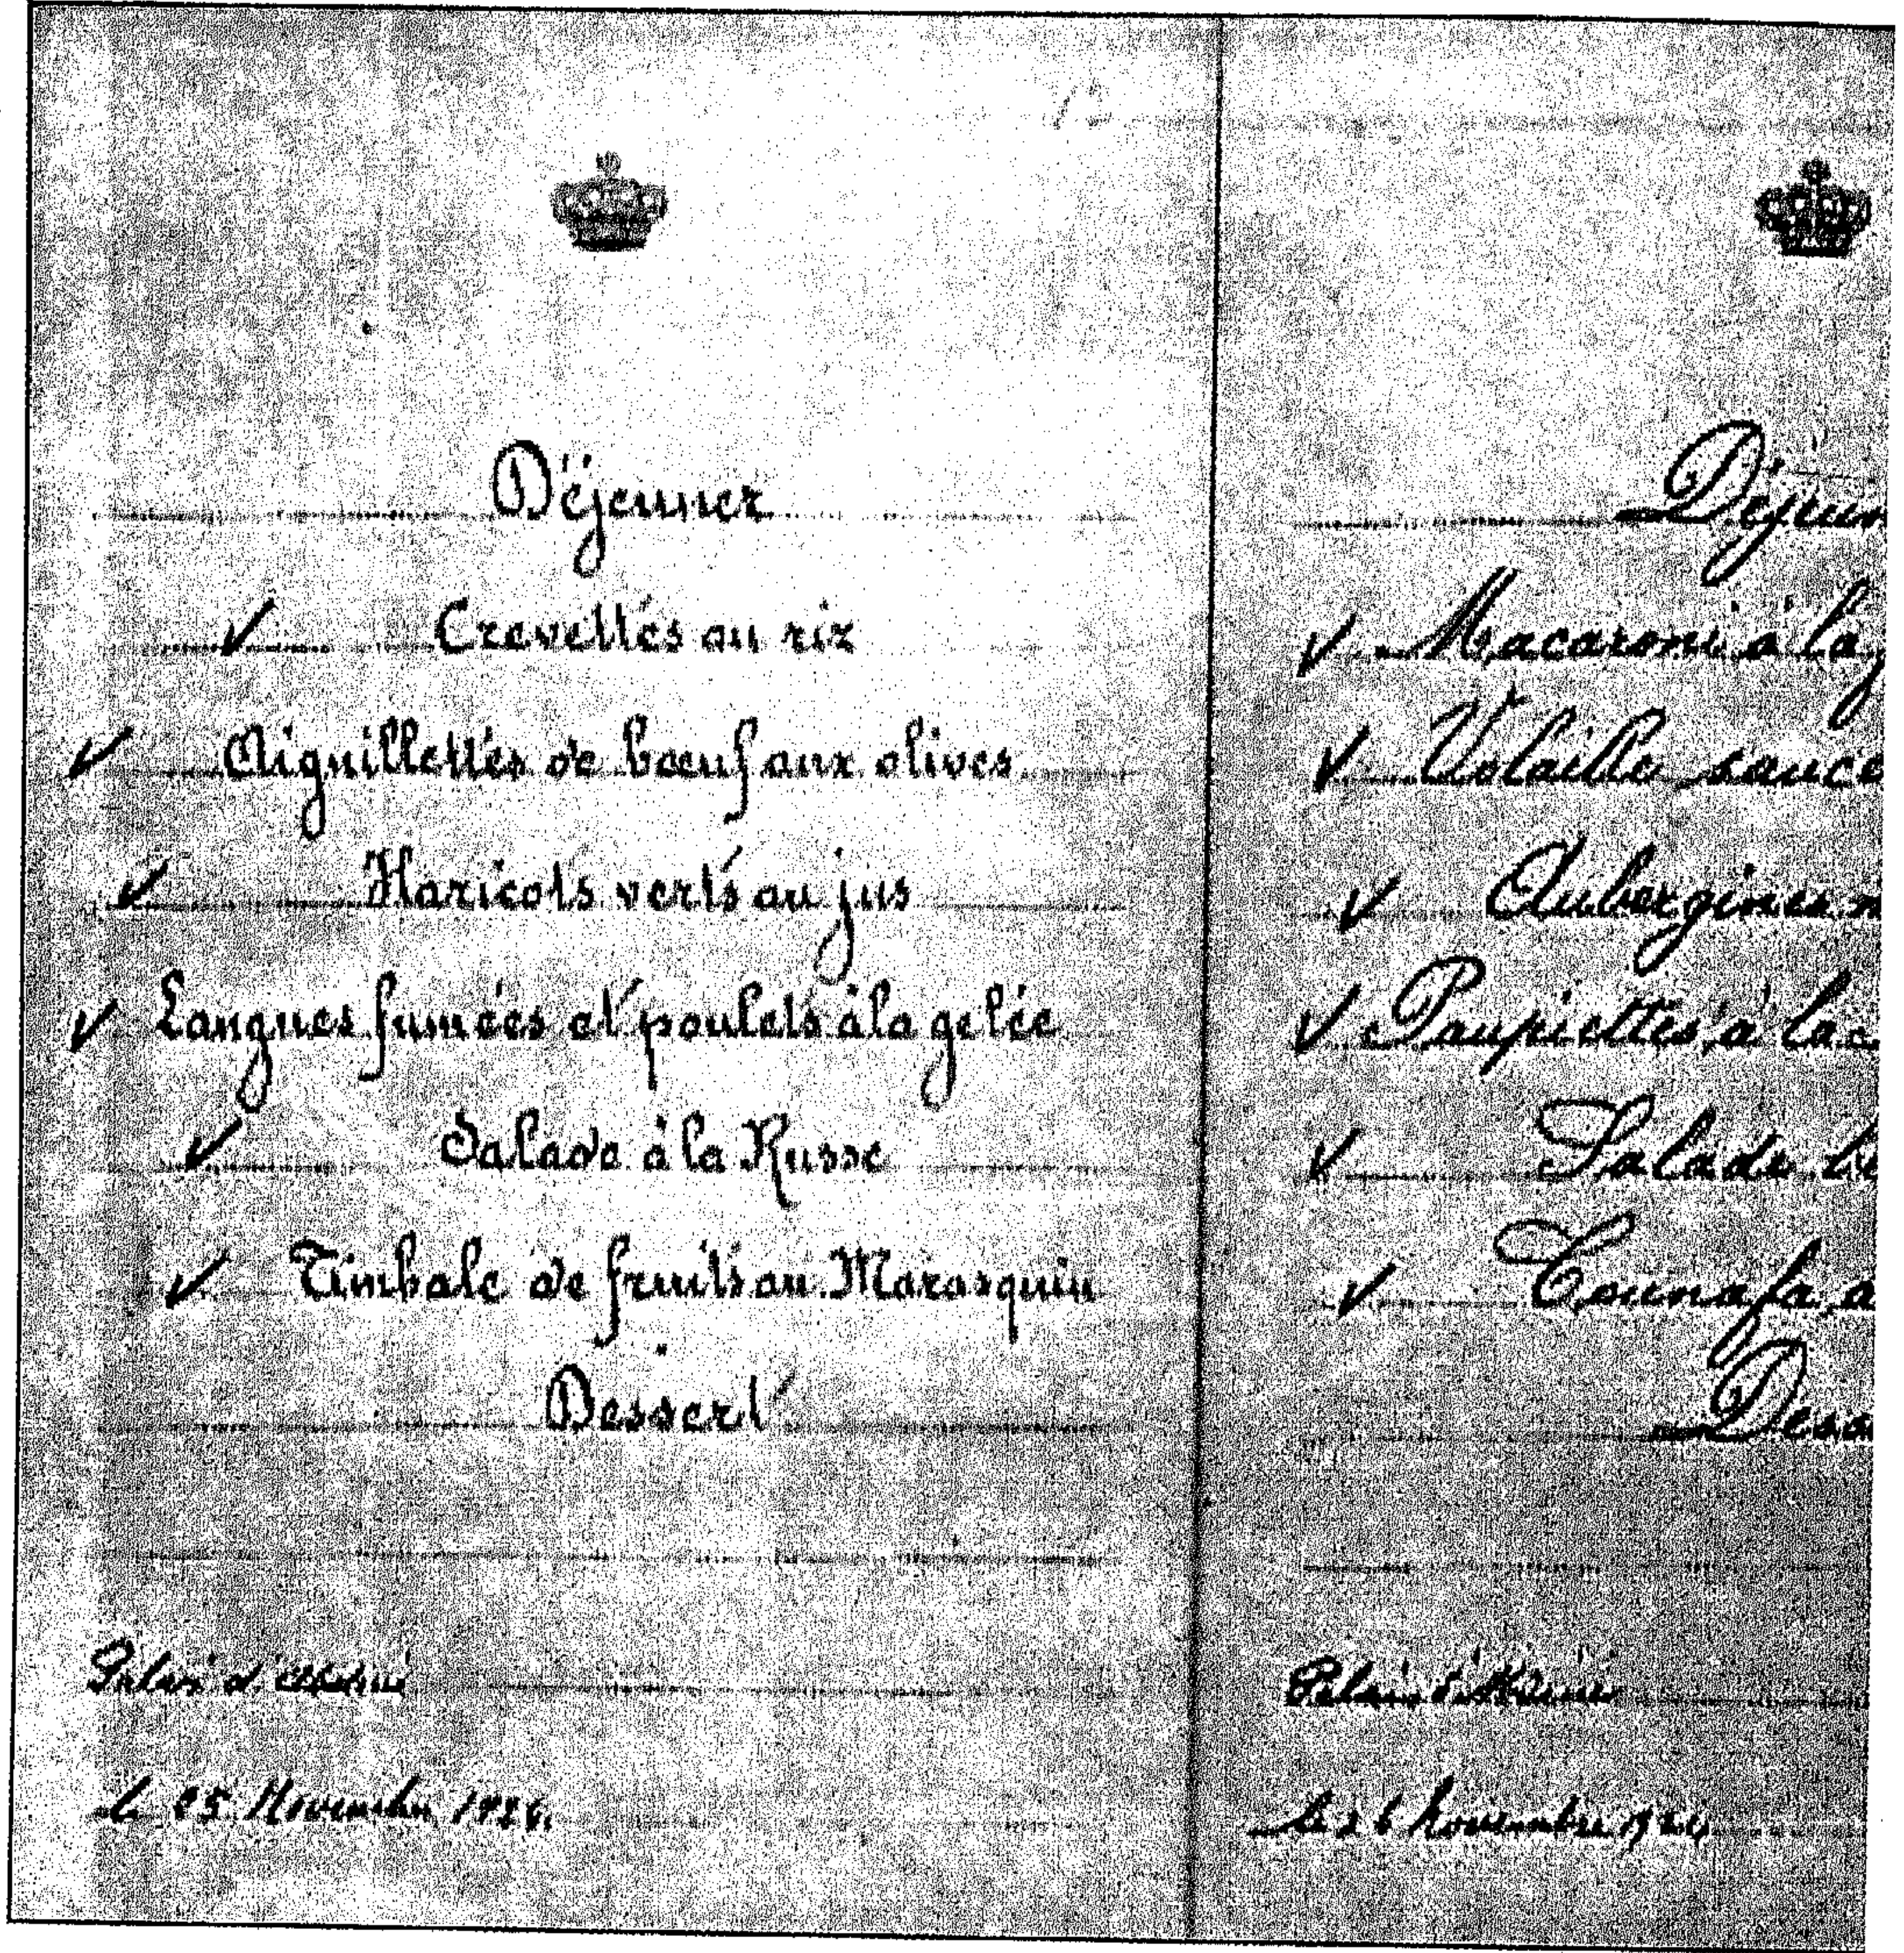 Déjeuner
Crevettes au riz
Aiguillettes de bœuf aux olives
Haricots verts au jus
Langues fumées et poulets à la gelée
Salade à la Russe
Timbale de fruits au Marasquin
Dessert
Palais d'Abdine
le 25 Novembre
Déjeun
Macaroni à la
Volaille sauce
Aubergines
Paupiettes à la
Salade
Counafa
Dess
Palais d'Abdine
Le 26 Novembre